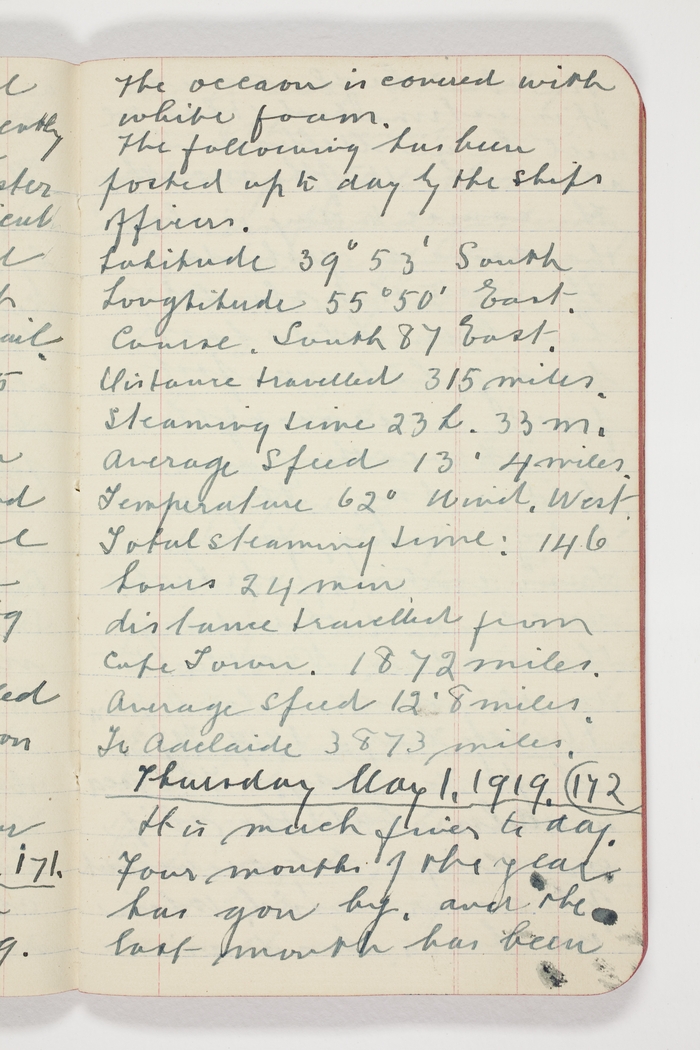 The occaon is covered with
white foam.
The following has been
posted up to day by the ships
officers.
Latitude 39° 53' South
Longtitude 55° 50' East.
Course. South 87 East.
Distance travelled 315 miles.
Steaming time 23 h. 33 m.
Average Speed 13·4 miles.
Temperature 62° Wind. West.
Total steaming time: 146
hours 24 min
distance travelled from
Cape Town. 1872 miles.
Average speed 12·8 miles.
To Adelaide 3873 miles.
Thursday May 1. 1919. 172
It is much finer to day.
Four months of the year
has gon by. and the
last month has been
171.